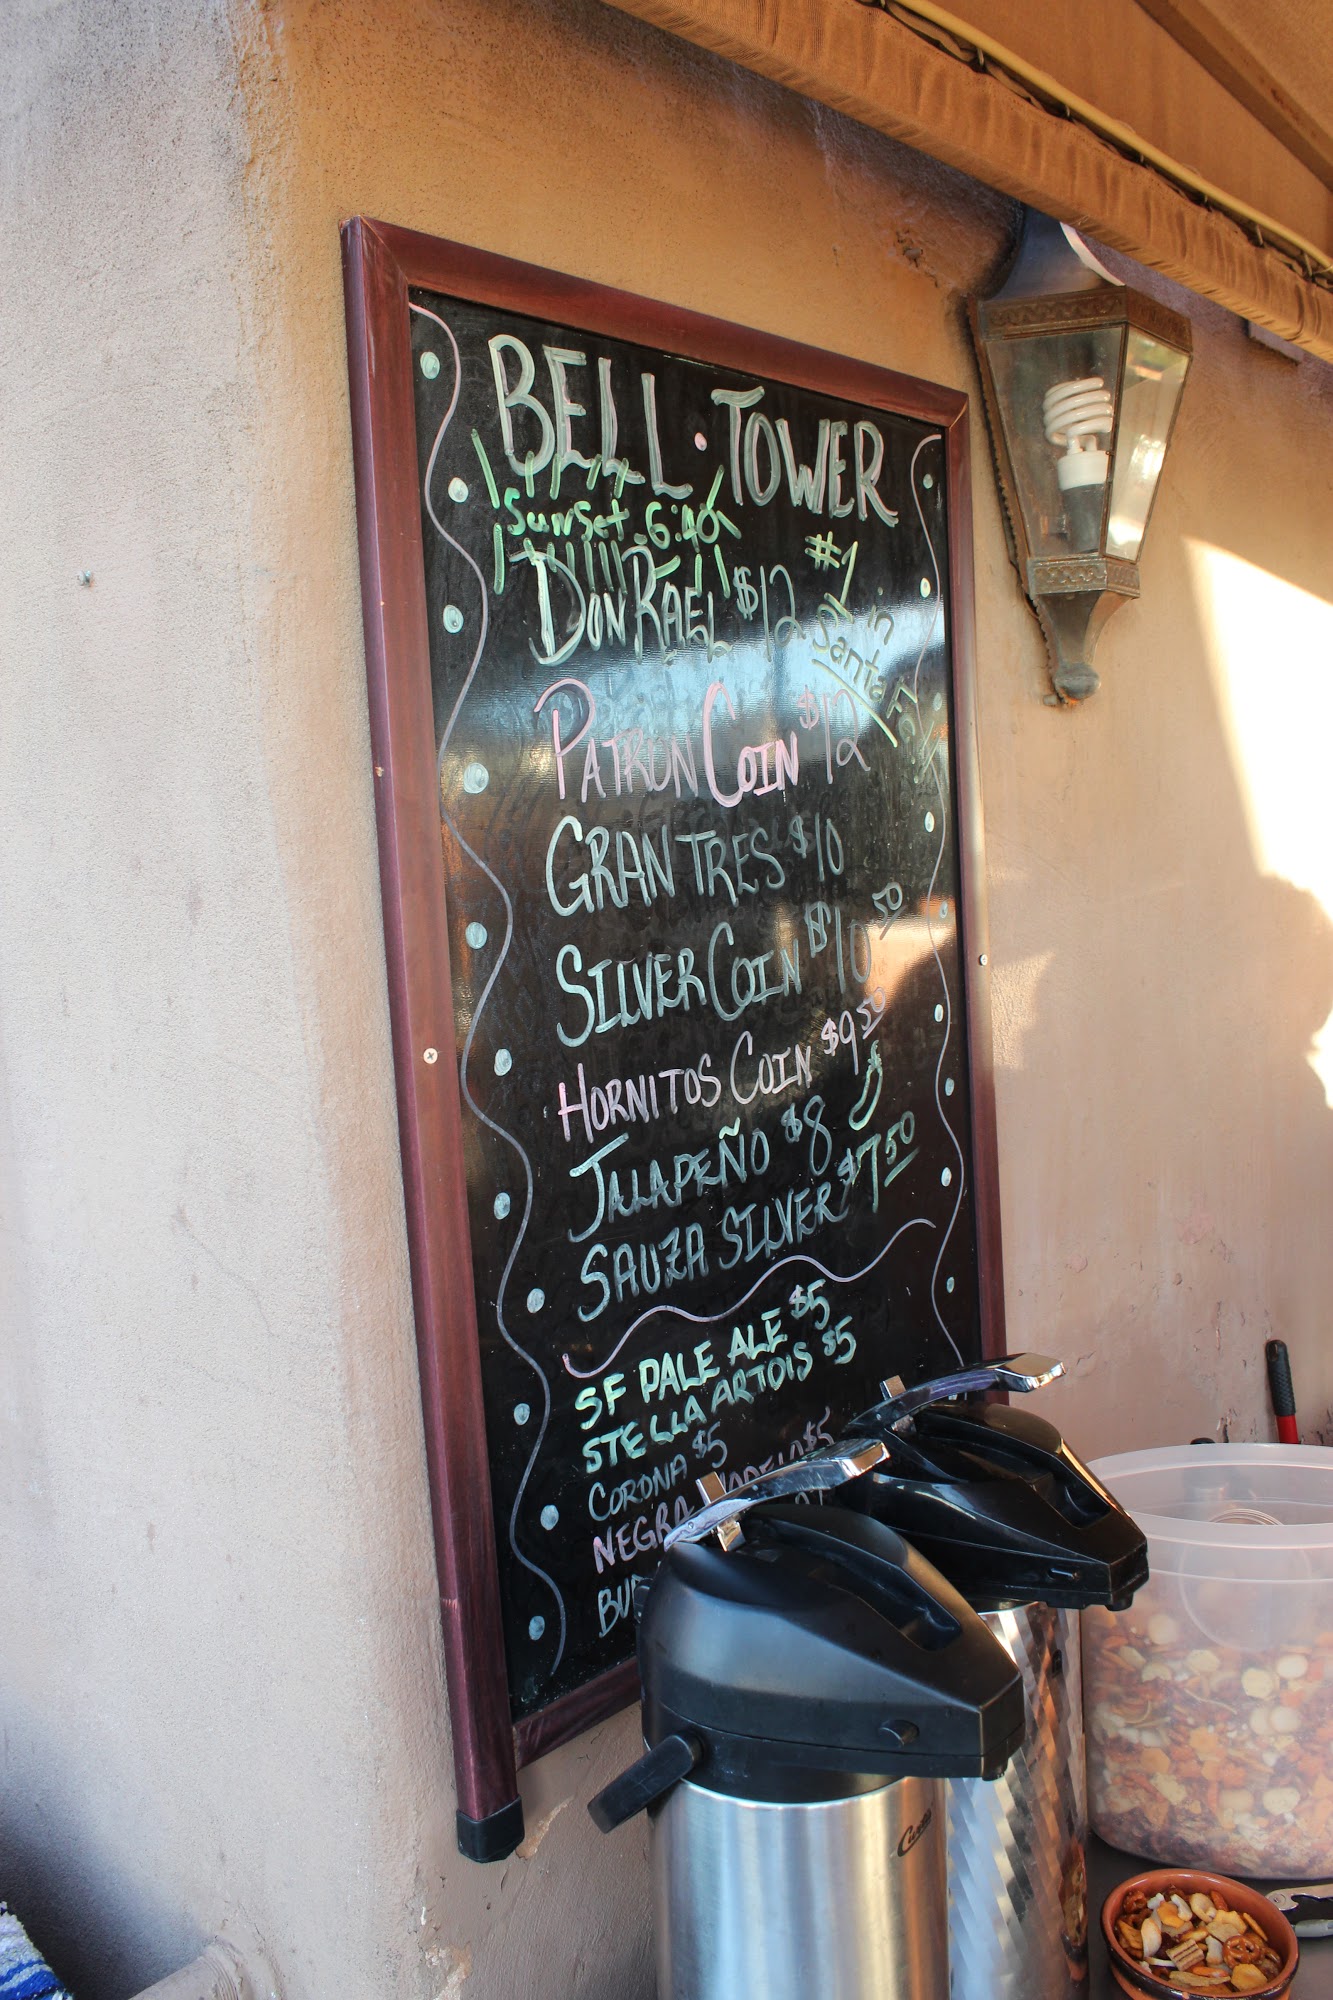 BELL • TOWER
Sunset 6:40
DON RAEL $12
#1 in Santa Fe!
PATRON COIN $12
GRAN TRES $10
SILVER COIN $10 50
HORNITOS COIN $9 50
JALAPEÑO $8
SAUZA SILVER $7 50
SF PALE ALE $5
STELLA ARTOIS $5
CORONA $5
NEGRA MODELO $5
Curtis